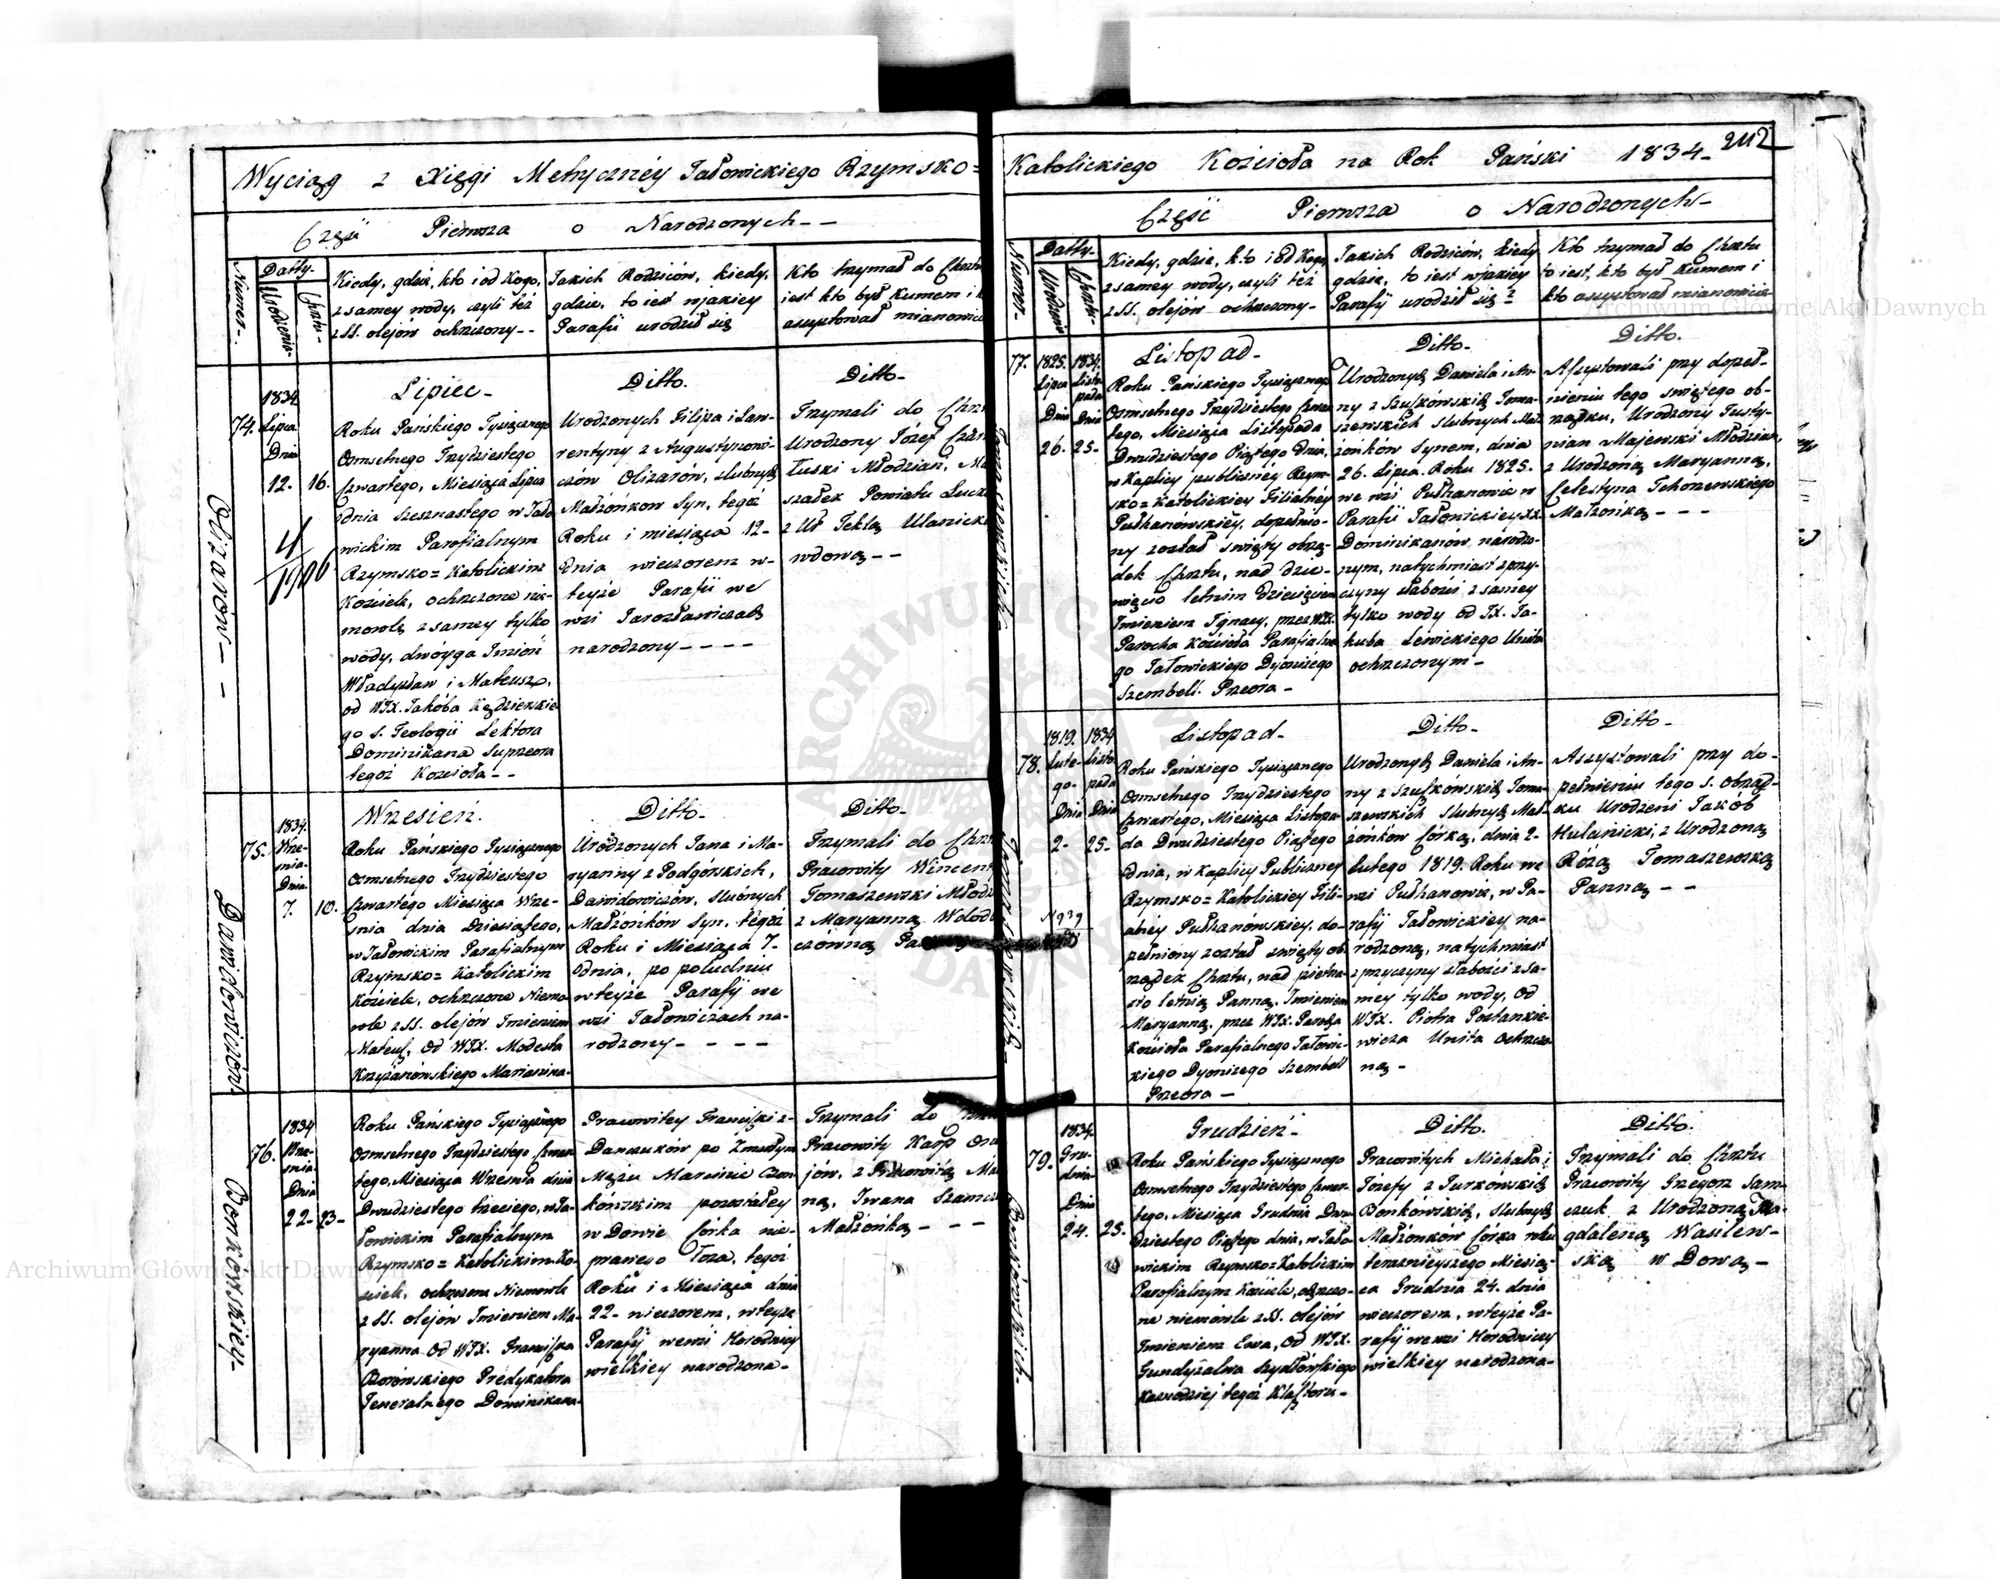 Wyciąg z Xięgi Metryczney Jałowickiego Rzymsko=
Część Pierwsza o Narodzonych--
Numer.
Datty.
Urodzenia.
Chrztu.
Kiedy, gdzie, kto i od kogo,
z samey wody, czyli też
z SS. olejów ochrzczony--
Jakich Rodziców, kiedy,
gdzie, to iest wjakiey
Parafii urodził się
Kto trzymał do Chrztu
iest kto był Kumem i
assystował mianowicie
Olizarow--
74.
1834
Lipca
Dnia
12.
16.
4/1906
Lipiec-
Roku Pańskiego Tysiącznego
Osmsetnego Trzydziestego
Czwartego, Miesiąca Lipca
dnia szesnastego w Jało
wickim Parafialnym
Rzymsko=Katolickim
Kościele, ochrzczone nie-
mowle z samey tylko
wody, dwoyga Imión
Władysław i Mateusz,
od WJX. Jakóba Kędzierskie
go S. Teologii Lektora
Dominikana Supreora
tegoż Kościoła--
Ditto.
Urodzonych Filipa i Law-
rentyny z Augustynowi-
czów Olizarów, slubnych
Małżonkow Syn, tegoż
Roku i miesiąca 12-
dnia wieczorem w-
teyże Parafii we
wsi Jarosławiczach
narodzony----
Ditto-
Trzymali do Chrztu
Urodzony Józef
Młodzian,
szałek Powiatu
z Ur Teklą Ulanicką
wdową--
Dawidowiczow
75.
1834.
Wrze-
śnia-
Dnia
7.
10.
Wrzesień.
Roku Pańskiego Tysiącznego
Osmsetnego Trzydziestego
Czwartego Miesiąca Wrze-
śnia dnia Dziesiątego,
w Jałowickim Parafialnym
Rzymsko=Katolickim
Kościele, ochrzczone Niemo
wle z SS. olejów Imieniem
Mateusz, od WJX. Modesta
Krzyżanowskiego Mariawina-
Ditto-
Urodzonych Jana i Ma-
ryanny z Podgórskich,
Dawidowiczów, slubnych
Małżonków Syn, tegoż
Roku i Miesiąca 7-
dnia, po południu
w teyże Parafij we
wsi Jałowiczach na-
rodzony----
Ditto-
Trzymali do Chrztu
Pracowity Wincenty
Tomaszewski
z Maryanną
czówną
76.
1834
Wrze-
śnia
Dnia
22-
23-
Roku Pańskiego Tysiącznego
Osmsetnego Trzydziestego Czwar
tego, Miesiąca Września dnia
Dwudziestego trzeciego, w Ja-
łowickim Parafialnym
Rzymsko=Katolickim Ko-
ściele, ochrzczone Niemowle
z SS. olejów Imieniem Ma-
ryanna od WJX. Franciszka
Borowskiego Predykatora
Jeneralnego Dominikana-
Pracowitey Franciszki z-
Danczuków po Zmarłym
Mężu Marcinie
pozostałey
wDowie córka nie-
prawego Łoża, tegoż
Roku i Miesiąca dnia
22- wieczorem, w teyże
Parafij we wsi Horodnicy
wielkiey narodzona-
Trzymali do
Pracowity Karp
jów, z Pracowitą
ną, Iwana
Małżonką---
Katolickiego Kościoła na Rok Pański 1834-
242
Część Pierwsza o Narodzonych-
Numer-
Datty-
Urodzenia
Chrztu-
Kiedy, gdzie, kto i od kogo,
z samey wody, czyli też
z SS. olejów ochrzczony-
Jakich Rodziców, kiedy
gdzie, to iest wjakiey
Parafij urodził się?
Kto trzymał do Chrztu
to iest, kto był Kumem i
kto assystował mianowicie-
Tomaszewskich
77.
1825.
Lipca
Dnia
26.
1834.
Listo
pada
Dnia
25-
Listopad-
Roku Pańskiego Tysiącznego
Osmsetnego Trzydziestego Czwar
tego, Miesiąca Listopada
Dwudziestego Piątego Dnia,
w Kaplicy publiczney Rzym-
sko=Katolickiey Filialney
Pułhanowskiey, dopełnio-
ny został święty obrzą-
dek Chrztu, nad dzie-
więcio letnim Dziecięciem
Imieniem Jgnacy, przez WJX.
Parocha Kościoła Parafialne
go Jałowickiego Dyonizego
Szembell. Preora-
Ditto-
Urodzonych Daniela i An-
ny z Szułkowskich Toma-
szewskich Slubnych Mał-
żonków Synem, dnia
26. Lipca Roku 1825.
we wsi Pułhanowie w
Parafij Jałowickiey XX.
Dominikanów, narodzo-
nym, natychmiast z przy-
czyny słabości z samey
tylko wody od JX. Ja-
kuba Lewickiego Unita
ochrzczonym-
Ditto.
Assystowali przy dopeł-
nieniu tego świętego ob-
rządku, Urodzony Justy-
nian Majewski Młodzian,
z Urodzoną Maryanną,
Celestyna Tchorzewskiego
Małżonką---
Tomaszewskich-
78.
1819.
Lute-
go-
Dnia
2-
1834
Listo
pada
Dnia
25-
N939
Listopad-
Roku Pańskiego Tysiącznego
Osmsetnego Trzydziestego
Czwartego, Miesiąca Listopa-
da Dwudziestego Piątego
dnia, w Kaplicy Publiczney
Rzymsko=Katolickiey Fili-
alney Pułhanowskiey, do-
pełniony został święty ob
rządek Chrztu, nad pietna-
sto letnią Panną, Imieniem
Maryanną, przez WJX. Parocha
Kościoła Parafialnego Jałowic-
kiego Dyonizego Szembell
Preora-
Ditto-
Urodzonych Daniela i An-
ny z Szułkowskich Toma-
szewskich Slubnych Mał-
żonków Córką, dnia 2-
Lutego 1819. Roku we
wsi Pułhanowie, w Pa-
rafij Jałowickiey na-
rodzoną, natychmiast
z przyczyny słabości z sa-
mey tylko wody, od
WJX. Piotra
wicza Unita Ochrzczo
ną-
Ditto-
Assystowali przy do-
pełnieniu tego S. obrząd-
ku Urodzeni Jakób
Hulanicki, z Urodzoną
Różą Tomaszewską
Panną--
79.
1834.
Gru-
dnia-
Dnia
24.
25-
Grudzień-
Roku Pańskiego Tysiącznego
Osmsetnego Trzydziestego Czwar-
tego, Miesiąca Grudnia Dwu-
dziestego Piątego dnia, w Jało-
wickim Rzymsko=Katolickim
Parafialnym Kościele, ochrzczo-
ne niemowle z SS. olejów
Imieniem Ewa, od WJX.
Gundysalwa Szydłowskiego
Kaznodziei tegoż Klasztoru-
Ditto.
Pracowitych Michała i
Józefy z Jurkowskich
Bonkowskich, slubnych
Małżonków Córka roku
teraznieyszego Miesią-
ca Grudnia 24. dnia
wieczorem, w teyże Pa-
rafij we wsi Horodnicy
wielkiey narodzona-
Ditto.
Trzymali do Chrztu
Pracowity Grzegorz Sam-
czuk z Urodzoną Ma-
gdaleną Wasilew-
ską wDową-
Archiwum Główne Akt Dawnych
Archiwum Główne Akt Dawnych